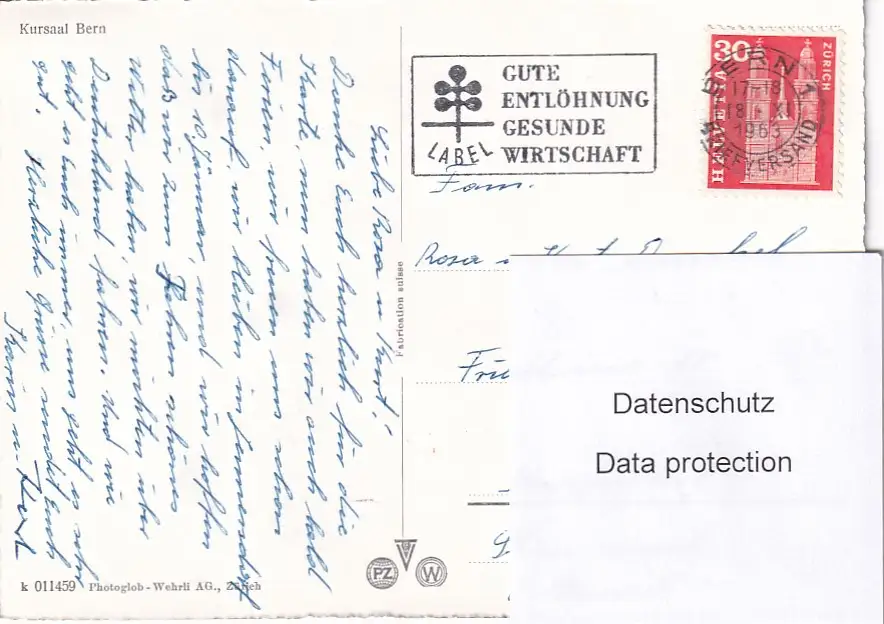 Kursaal Bern
Liebe Rosa u. Kurt!
Danke Euch herzlich für die
Karte, nun haben wir auch bald
Ferien, wir freuen uns schon
darauf, wir bleiben in
bis 10. Jänner, und wir hoffen
daß wir zum Fahren schönes
Wetter haben, wir möchten über
Deutschland fahren. Und wie
geht es Euch immer, uns geht es sehr
gut. Herzliche Grüsse sendet Euch
Karin u.
k 011459 Photoglob-Wehrli AG., Zürich
Fabrication suisse
PZ W
LABEL
GUTE
ENTLÖHNUNG
GESUNDE
WIRTSCHAFT
30
ZÜRICH
HELVETIA
BERN 1
17-18
18. XI
1963
BRIEFVERSAND
Fam.
Rosa u.
Datenschutz
Data protection